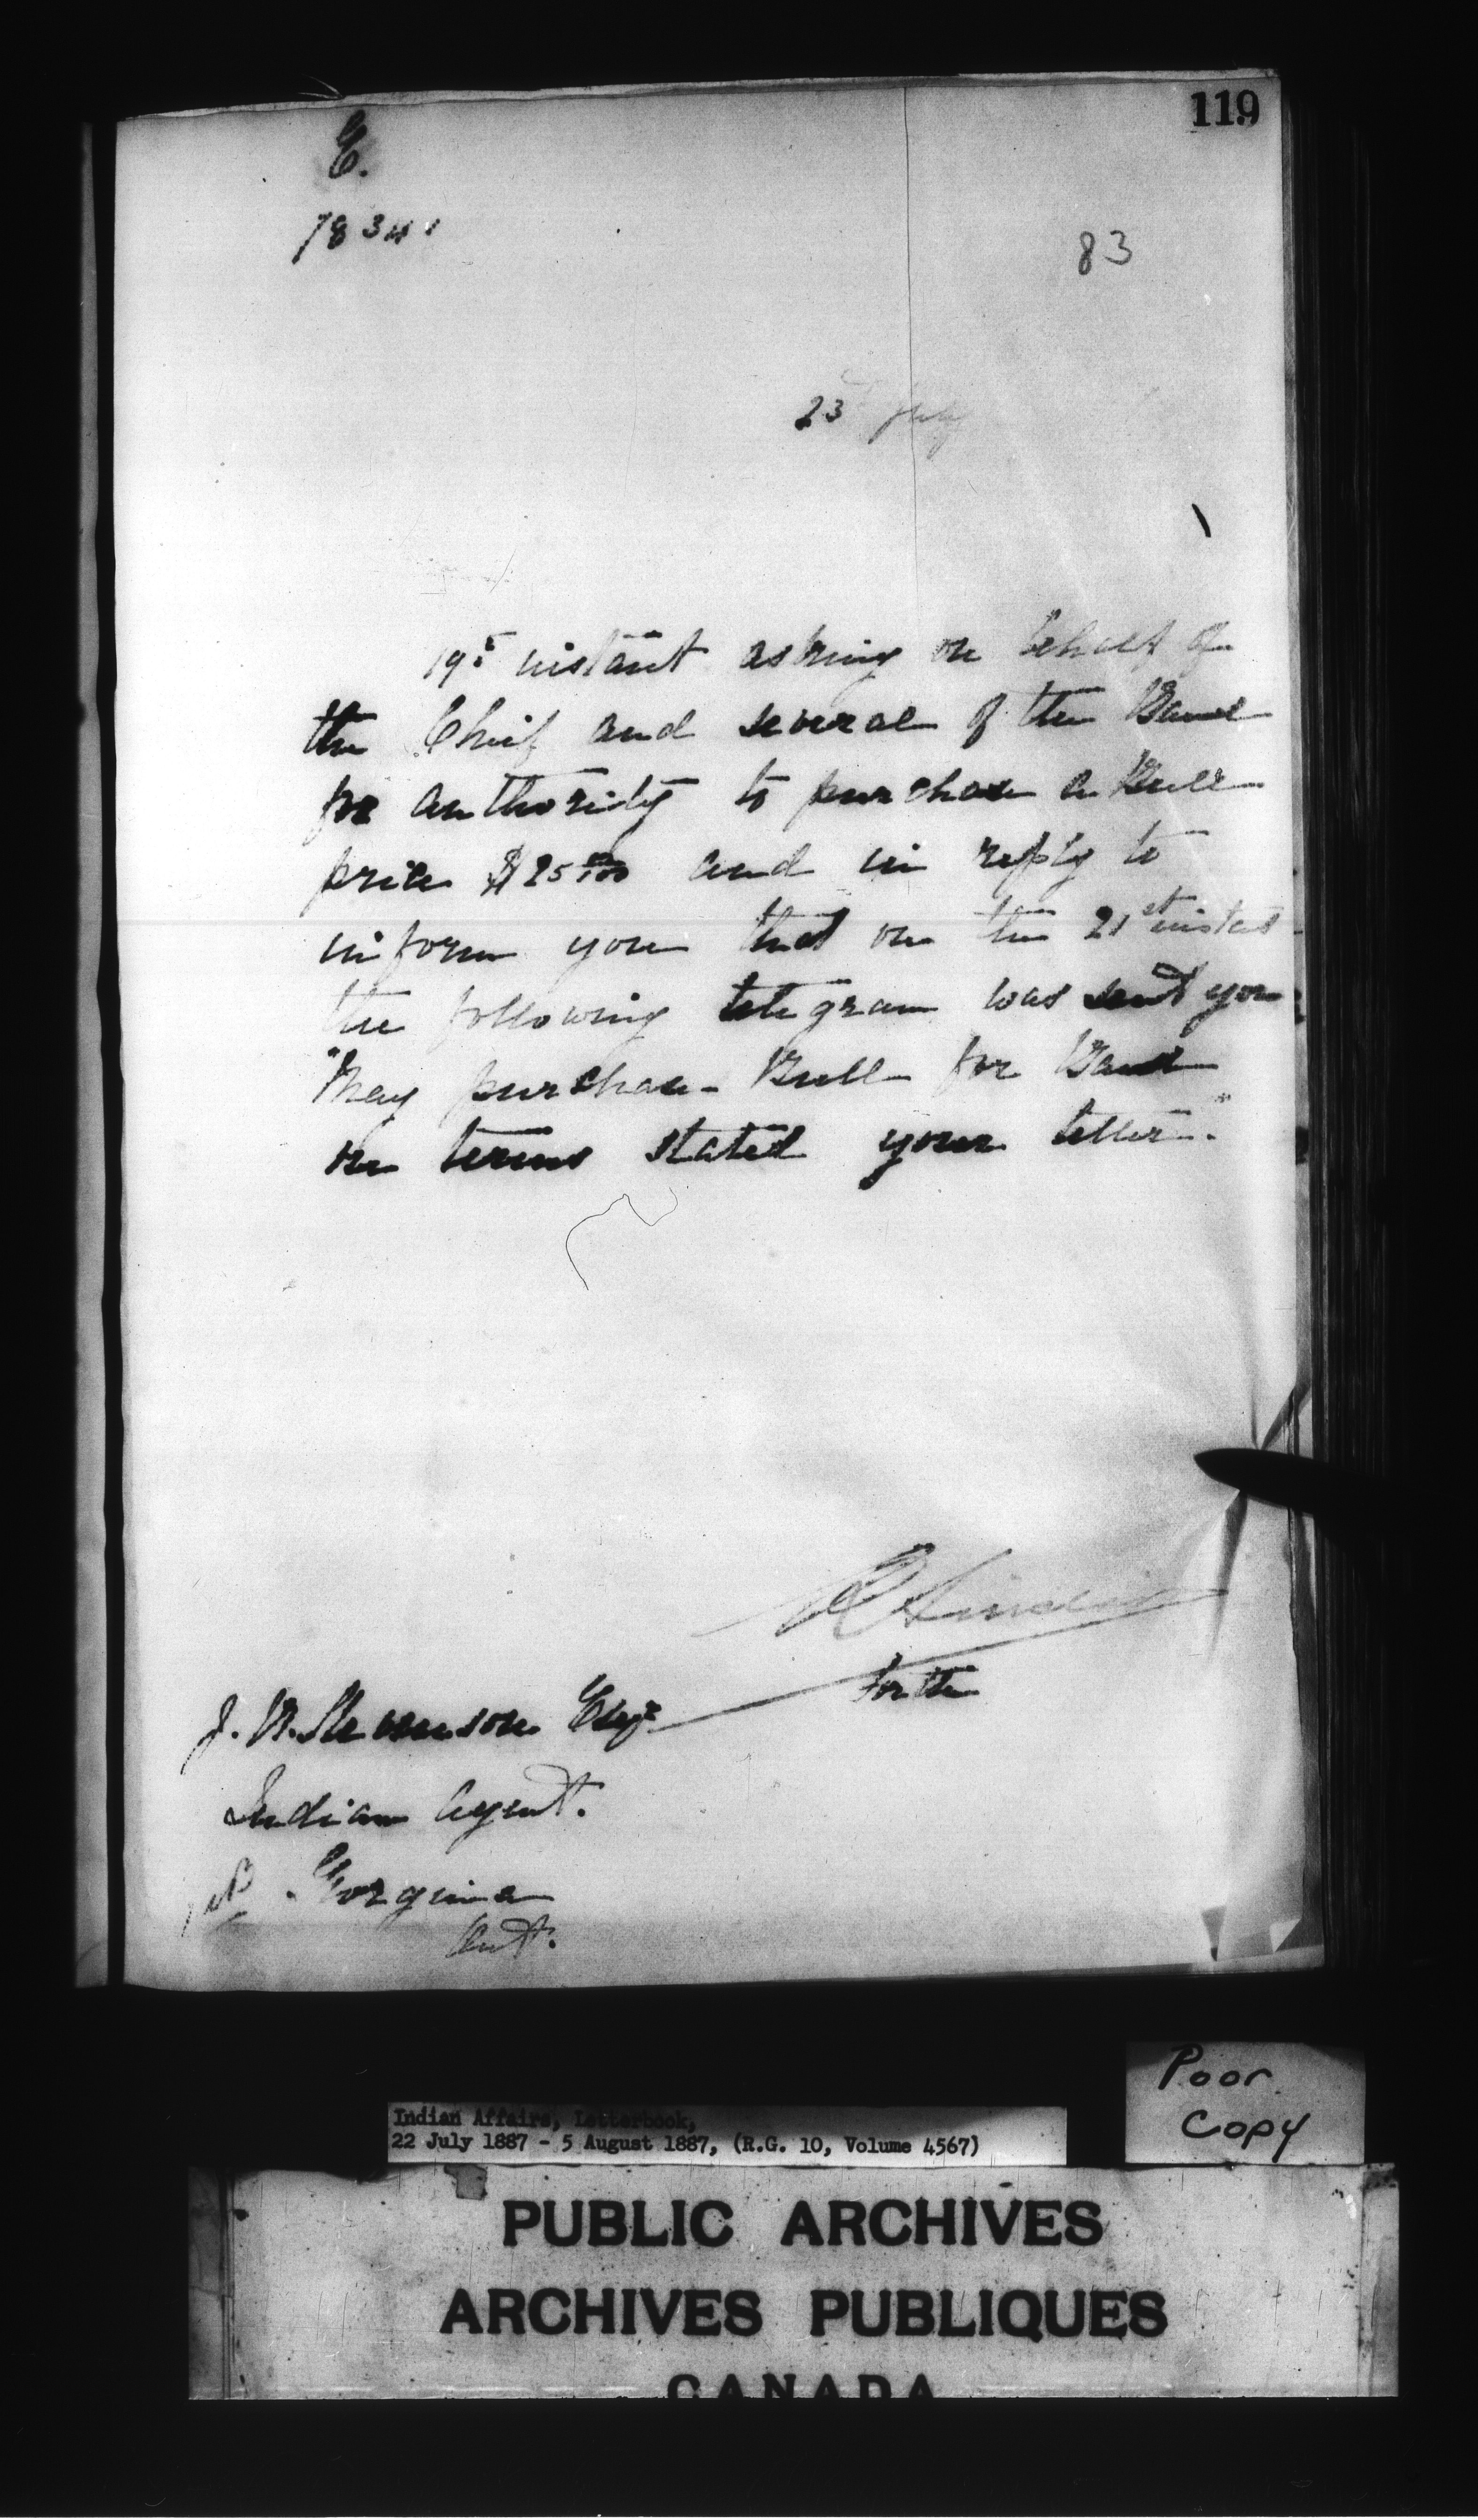 119
E.
78341
83
23 July
19th instant asking on behalf of
the Chief and several of the Band
for authority to purchase a Bull
price $25 00/100 and in reply to
inform you that on the 21st instant
the following telegram was sent you
"May purchase Bull for Band
on terms stated your letter."
R Sinclair
for the
J. R. Stevenson Esqr
Indian Agent.
Georgina
Ont.
Poor
Copy
Indian Affairs, Letterbook,
22 July 1887 - 5 August 1887, (R.G. 10, Volume 4567)
PUBLIC ARCHIVES
ARCHIVES PUBLIQUES
CANADA